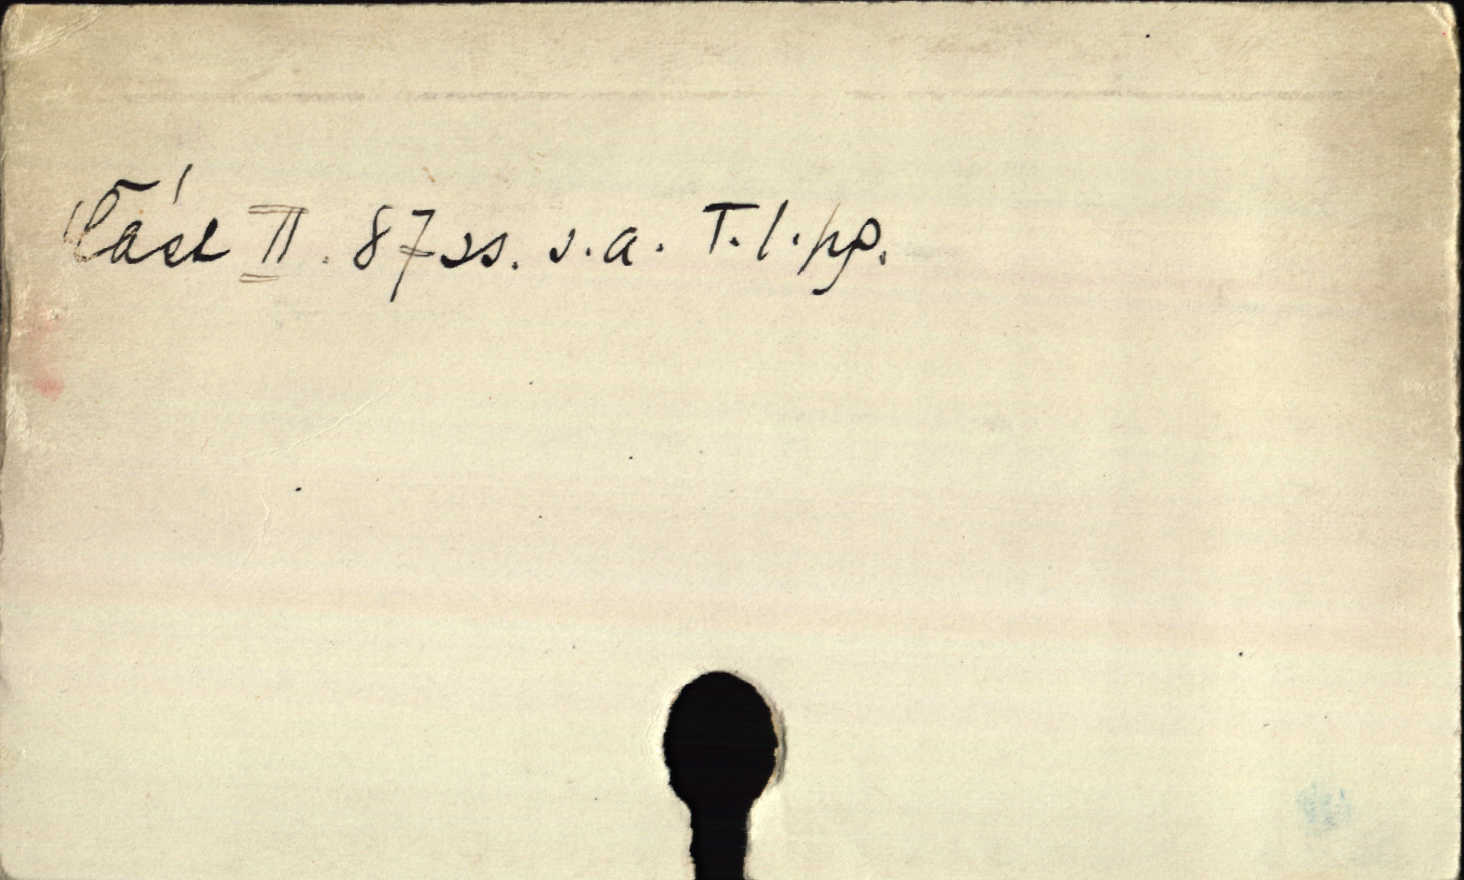 Část II. 87 ss. s.a. T.l.pp.